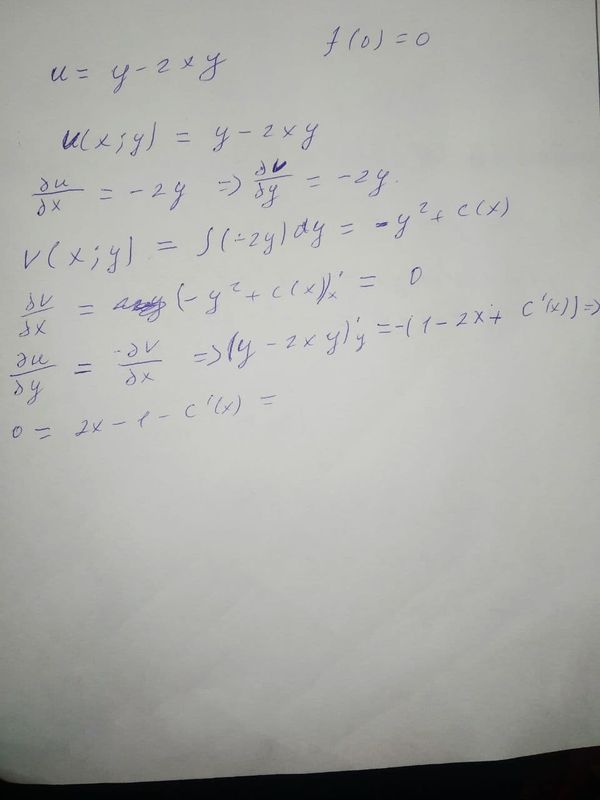 u = y - 2xy f(0) = 0
u(x;y) = y - 2xy
∂u/∂x = -2y => ∂v/∂y = -2y.
v(x;y) = ∫(-2y)dy = -y² + c(x)
∂v/∂x = (-y² + c(x))'ₓ = 0
∂u/∂y = -∂v/∂x => (y - 2xy)'y = -(1 - 2x + c'(x)) =>
0 = 2x - 1 - c'(x) =